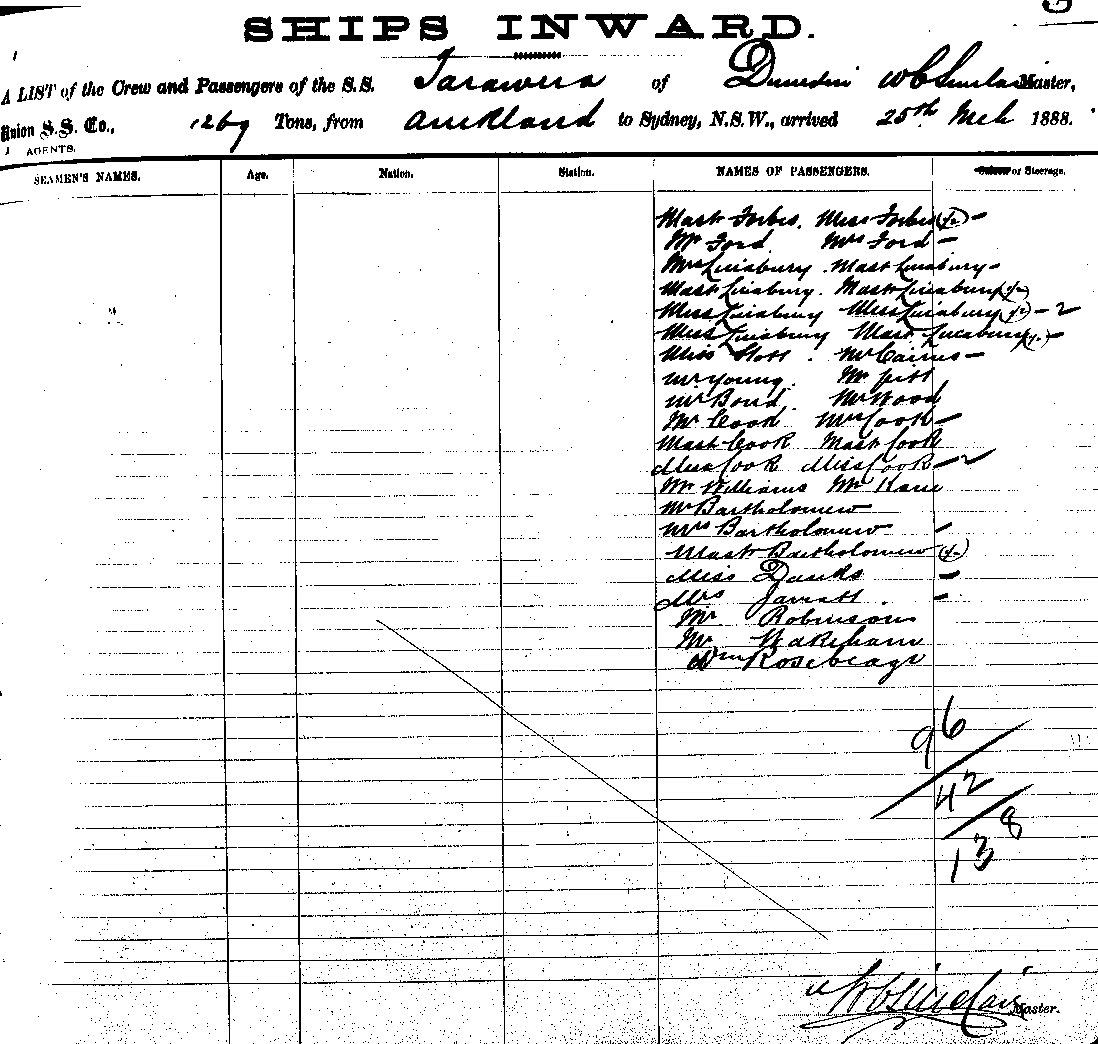 SHIPS INWARD.
A LIST of the Crew and Passengers of the S.S. Tarawera of Dunedin W C Sinclair Master,
Union S.S. Co., 1269 Tons, from Auckland to Sydney, N.S.W., arrived 25th Mch 1888.
AGENTS.
SEAMEN'S NAMES. Age. Nation. Station. NAMES OF PASSENGERS. or Steerage.
Mast Forbes. Miss Forbes
Mr Ford. Mrs Ford -
Mrs Mast
Mast Mast
Miss Miss - 2
Miss Mast -
Miss Stott. Mr Cairns -
Mr Young. Mr Pitt
Mr Bond. Mr Wood
Mr Cook Mrs Cook -
Mast Cook Mast Cook
Miss Cook Miss Cook - 2
Mr Williams Mr Kane
Mr Bartholomew
Mrs Bartholomew -
Mast Bartholomew
Miss Danks -
Mrs Jarratt. -
Mr Robinson
Mr Wakeham
Wm
96
42
138
W C Sinclair Master.